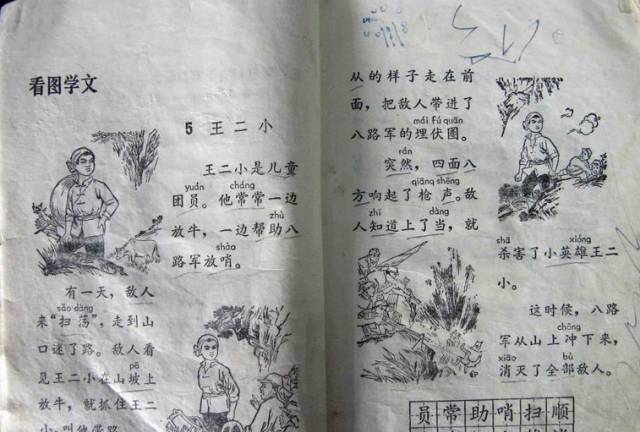 看图学文
5 王二小
王二小是儿童
yuán cháng
团员。他常常一边
zhù
放牛，一边帮助八
shào
路军放哨。
有一天，敌人
sǎo dàng
来“扫荡”，走到山
口迷了路。敌人看
pō
见王二小在山坡上
放牛，就抓住王二
小，叫他带路
从的样子走在前
面，把敌人带进了
mái fú quān
八路军的埋伏圈。
rán
突然，四面八
qiāng shēng
方响起了枪声。敌
zhī dàng
人知道上了当，就
shā xióng
杀害了小英雄王二
小。
这时候，八路
chōng
军从山上冲下来，
xiāo bù
消灭了全部敌人。
员常助哨扫顺